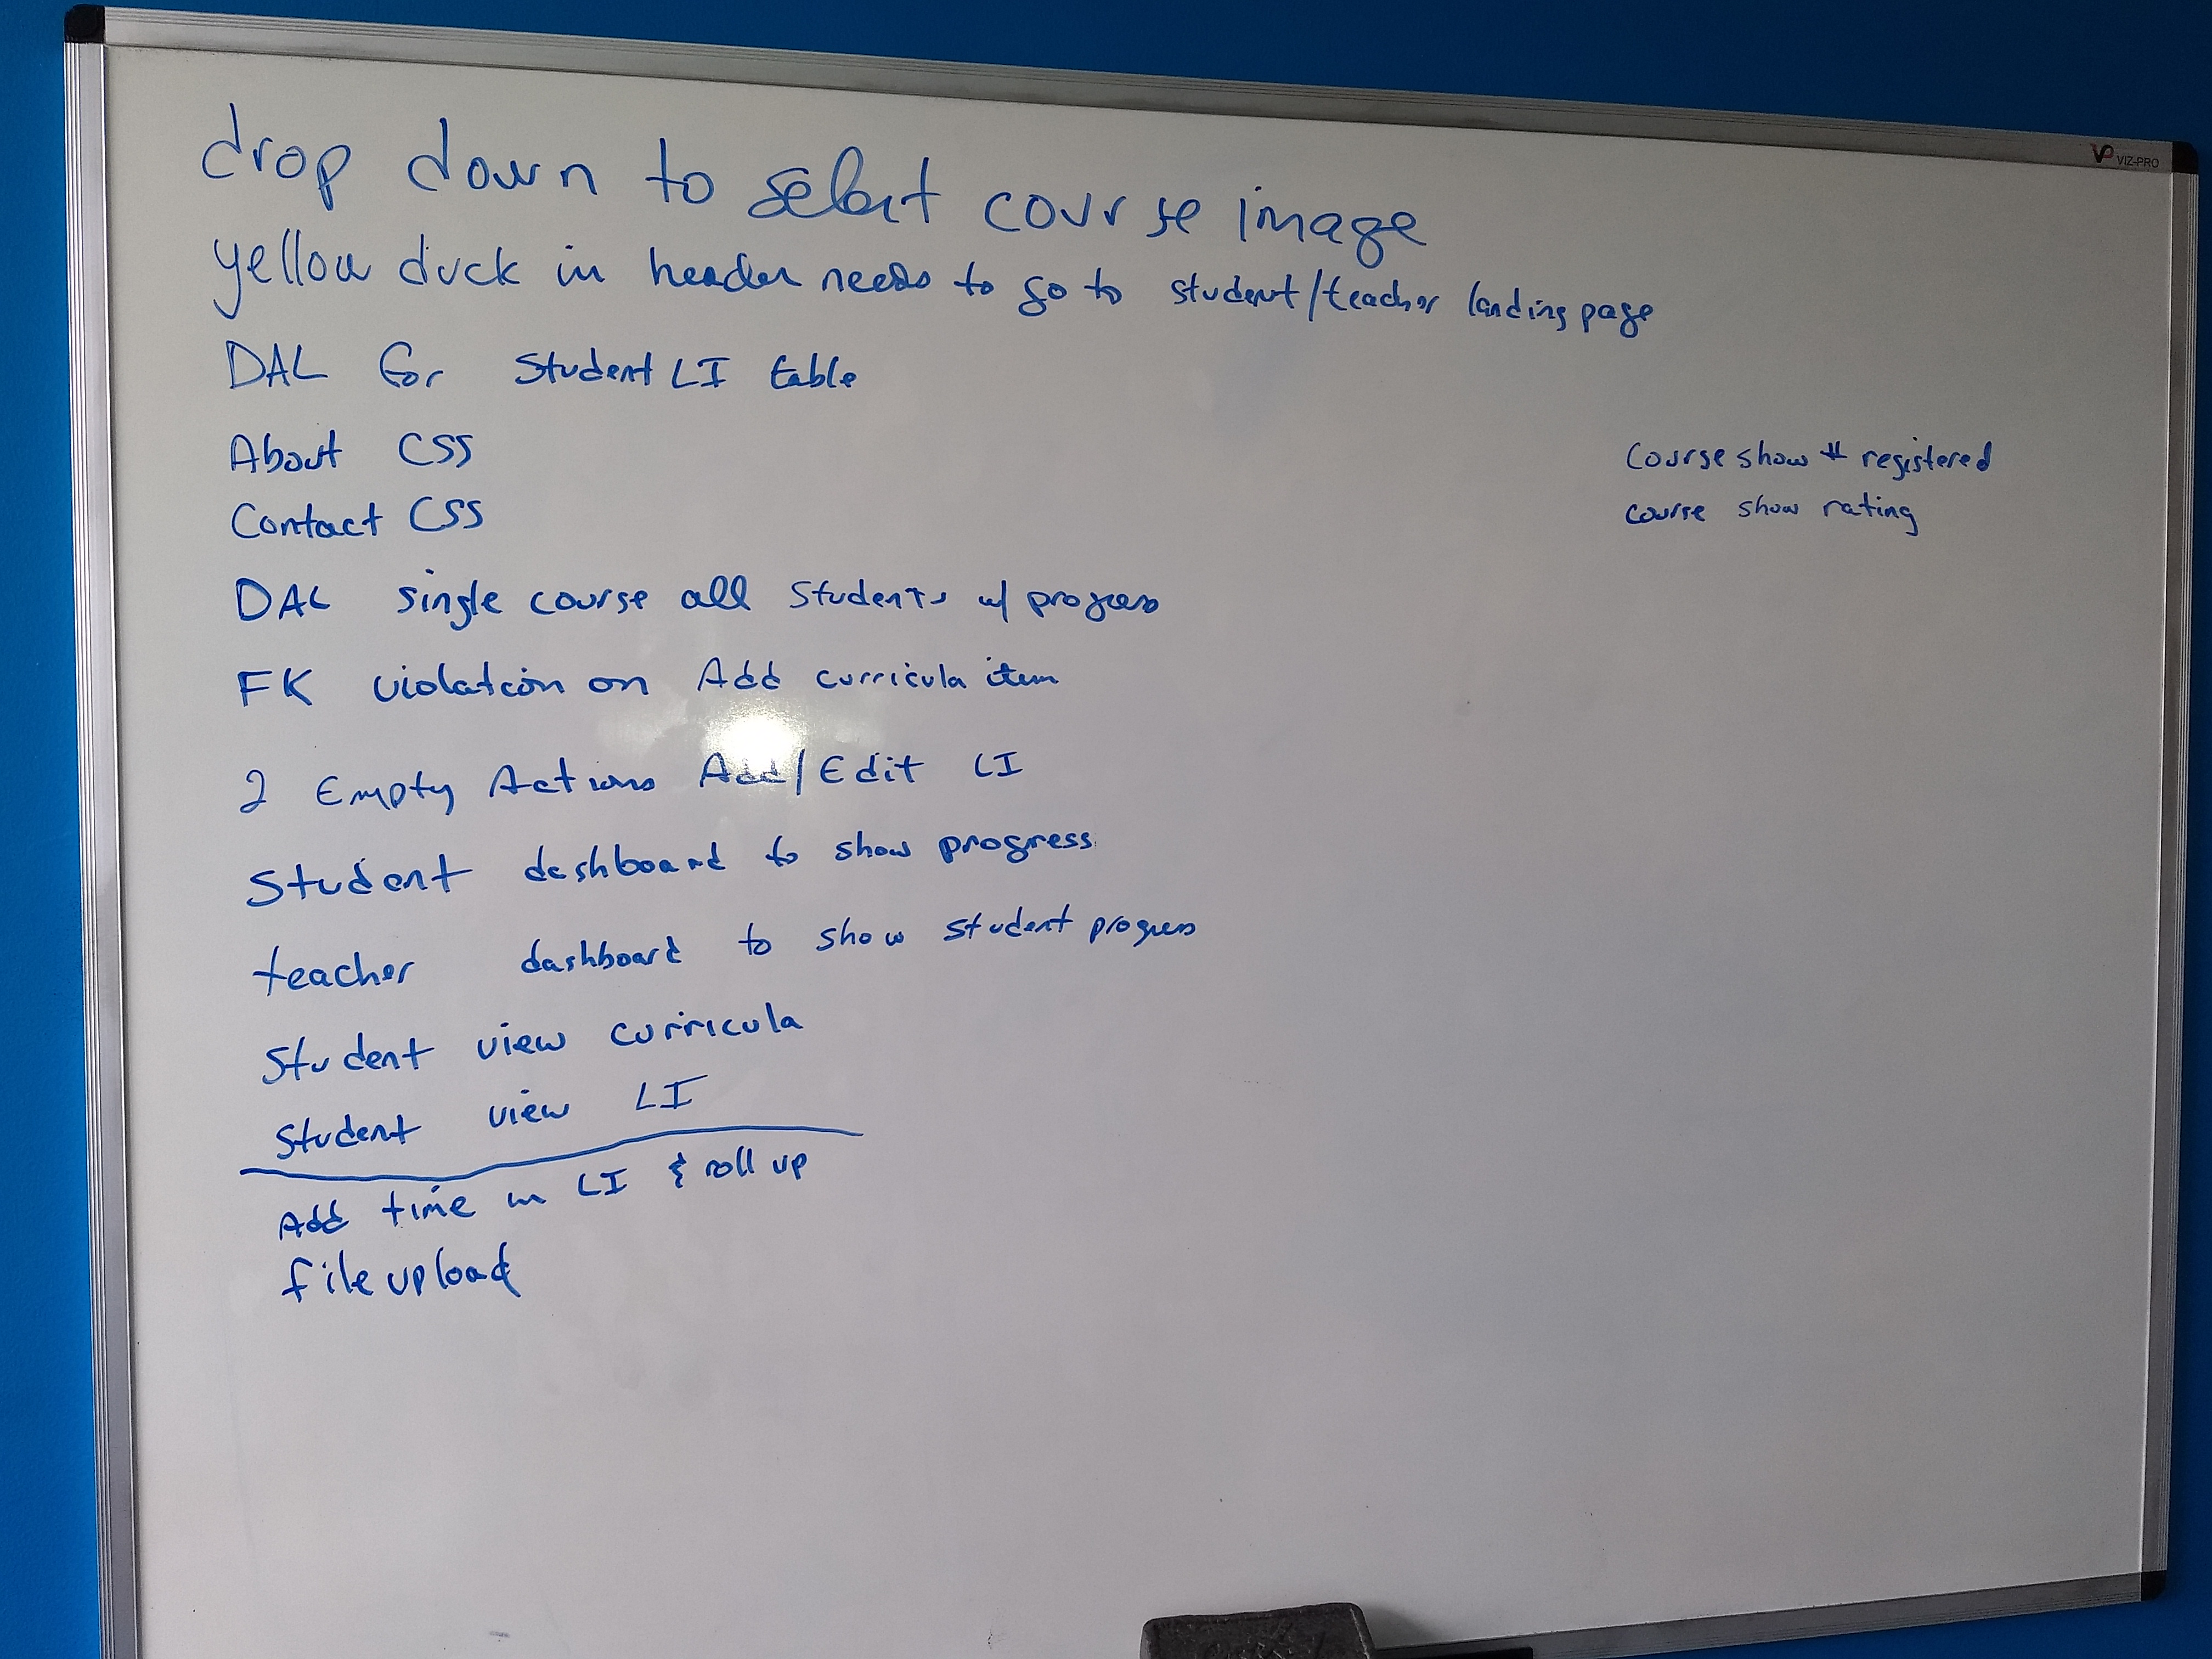 VP VIZ-PRO
drop down to select course image
yellow duck in header needs to go to student/teacher landing page
DAL for Student LI table
About CSS
Contact CSS
DAL single course all students w/ progress
FK violation on Add curricula item
2 Empty Actions Add/Edit LI
Student dashboard to show progress
teacher dashboard to show student progress
Student view curricula
Student view LI
Add time in LI & roll up
file upload
Course show # registered
course show rating